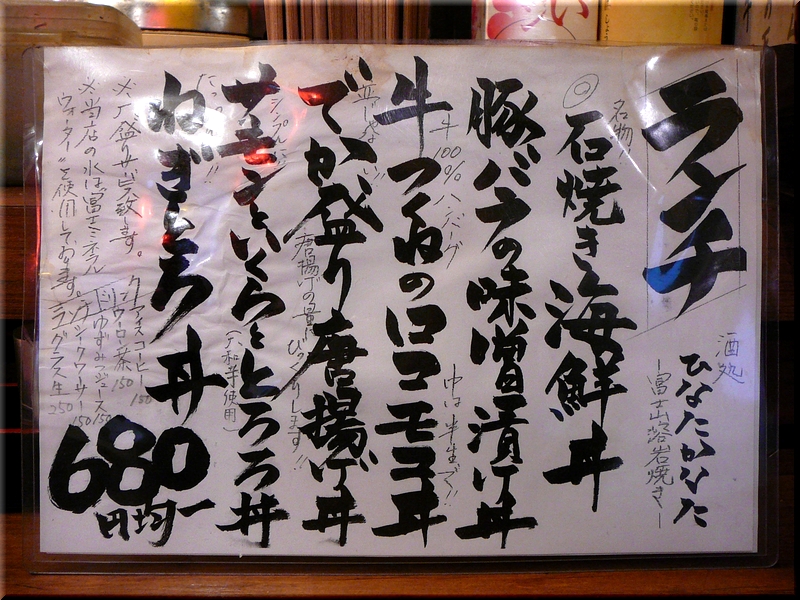 ランチ
酒処
ひなたかなた
―富士山溶岩焼き―
名物!
◎石焼き海鮮丼
豚バラの味噌漬け丼
牛100%ハンバーグ
牛つくねのロコモコ丼
中は半生で!!
でか盛り唐揚げ丼
唐揚げの量にびっくりします!!
サーモンといくらととろろ丼
(大和芋使用)
ねぎとろ丼
680円均一
※大盛りサービス致します。
※当店の水は富士ミネラル
ウォーターを使用しております。
アイスコーヒー 150
ウーロン茶 150
ゆずみつジュース 150
シークワーサー 150
グラス生 250